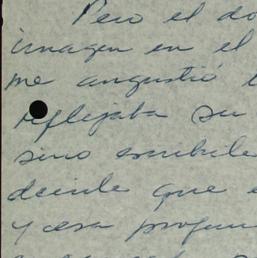 Pero el do
imagen en el
me angustió l
reflejaba su
sino escribile
decirle que e
y esa profun